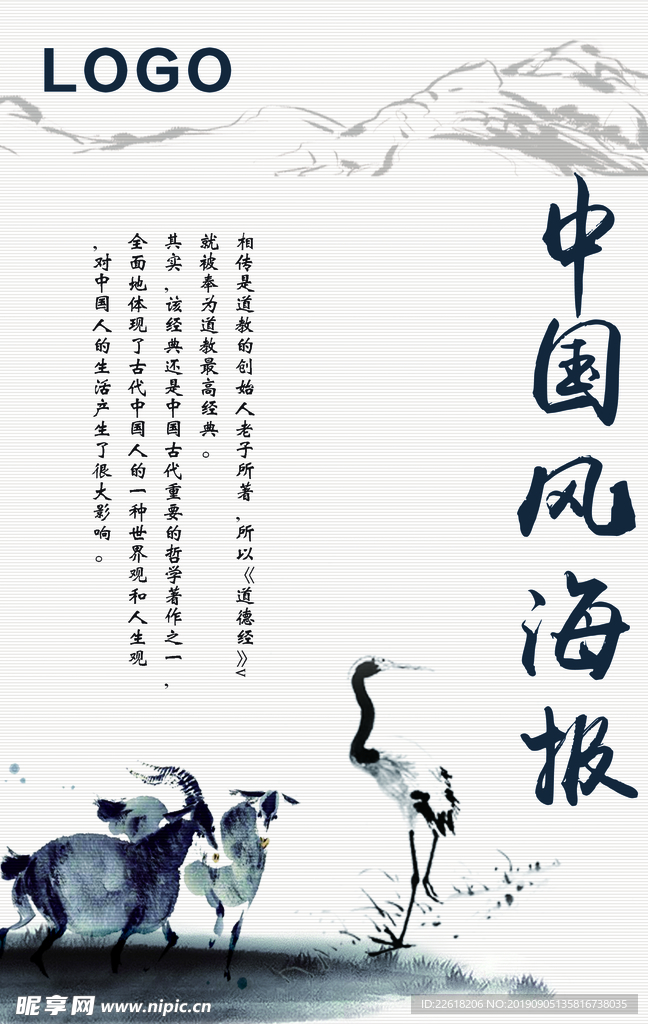 LOGO
中国风海报
相传是道教的创始人老子所著,所以《道德经》v
就被奉为道教最高经典。
其实,该经典还是中国古代重要的哲学著作之一,
全面地体现了古代中国人的一种世界观和人生观
,对中国人的生活产生了很大影响。
昵享网 www.nipic.cn
ID:22618206 NO:20190905135816738035